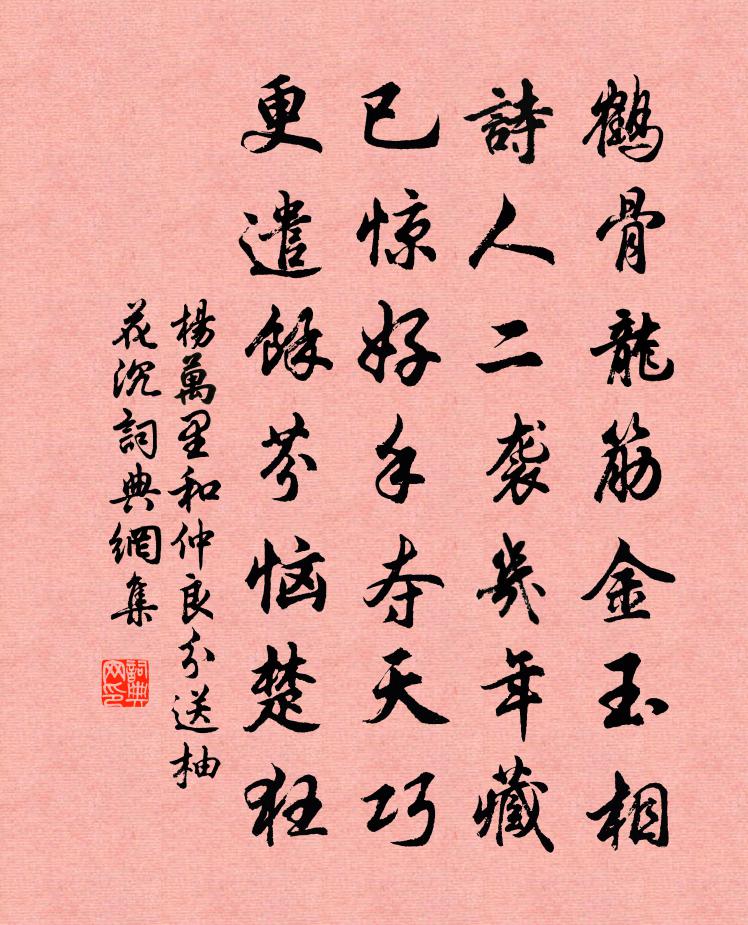 鹤骨龍筋金玉相
詩人二袭幾年藏
已惊好手夺天巧
更遣餘芬恼楚狂
楊萬里和仲良分送柚
花沉詞典網集
詞典网印